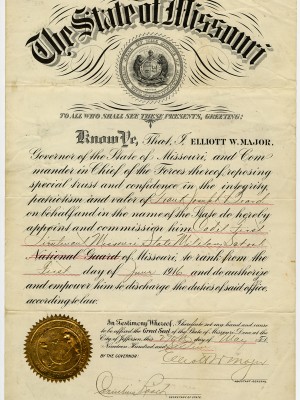 The State of Missouri
TO ALL WHO SHALL SEE THESE PRESENTS, GREETING:
Know Ye, That, I ELLIOTT W. MAJOR,
Governor of the State of Missouri, and Com-
mander in Chief of the Forces thereof, reposing
special trust and confidence in the integrity,
patriotism and valor of Frank Joseph
on behalf and in the name of the State do hereby
appoint and commission him Cadet First
Lieutenant Missouri State Military School
National Guard of Missouri, to rank from the
first day of June 1916, and do authorize
and empower him to discharge the duties of said office,
according to law.
In Testimony Whereof, I hereunto set my hand and cause
to be affixed the Great Seal of the State of Missouri. Done at the
City of Jefferson, this day of May
Nineteen Hundred and
BY THE GOVERNOR: Elliott W. Major
Cornelius Roach
SECRETARY OF STATE